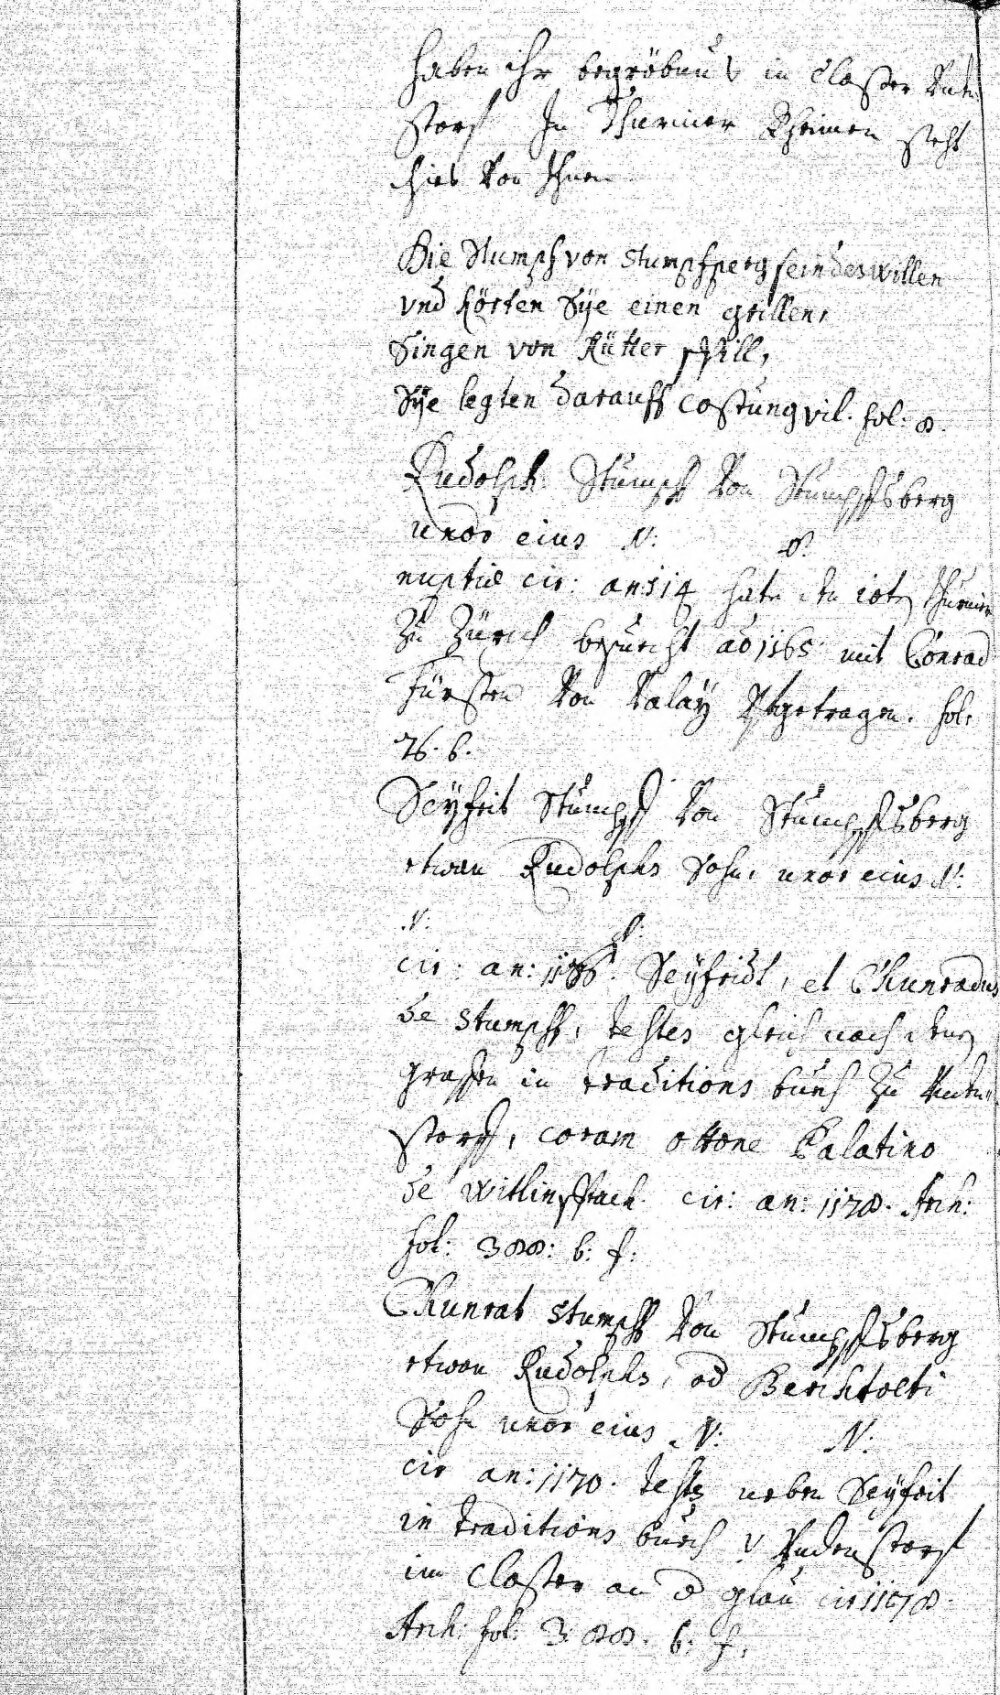 haben ihr begröbnus in Closter Unden
storf In Thurnier Rheimen steht
dies von Ihnen
Die Stumpf von Stumpfperg seindes willen
vnd hörten Sÿe einen grillen,
Singen von Rütter spill,
Sÿe legten darauff Costung vil. fol: 8.
Rudolph: Stumpff von Stumpffsberg
uxor eius N: N:
nuptiæ cir: an: 114 hate den 10ten thurnier
Zu Zürich besucht aõ 1165 mit Conrad
Fürsten von Valaÿ Vfgetragen. fol:
76. b.
Seÿfrit Stumpff von Stumpffsberg
etwan Rudolphs Sohn, uxor eius N:
N: N:
cir: an: 1176. Seÿfridt, et Chunradus
de Stumpff, testes gleich nach den
graffen in traditions buech zu Unden
storff, coram Ottone Palatino
de Witlinspach cir: an: 1178. Arch:
fol: 388: b: f:
Chunrat Stumpff von Stumpffsberg
etwan Rudolphs, od Berchtolti
Sohn uxor eius N: N:
cir an: 1170. testis neben Seÿfrit
in traditions buech v Undenstorf
im Closter an d glan cir 1178.
Arch: fol: 388. b: f: